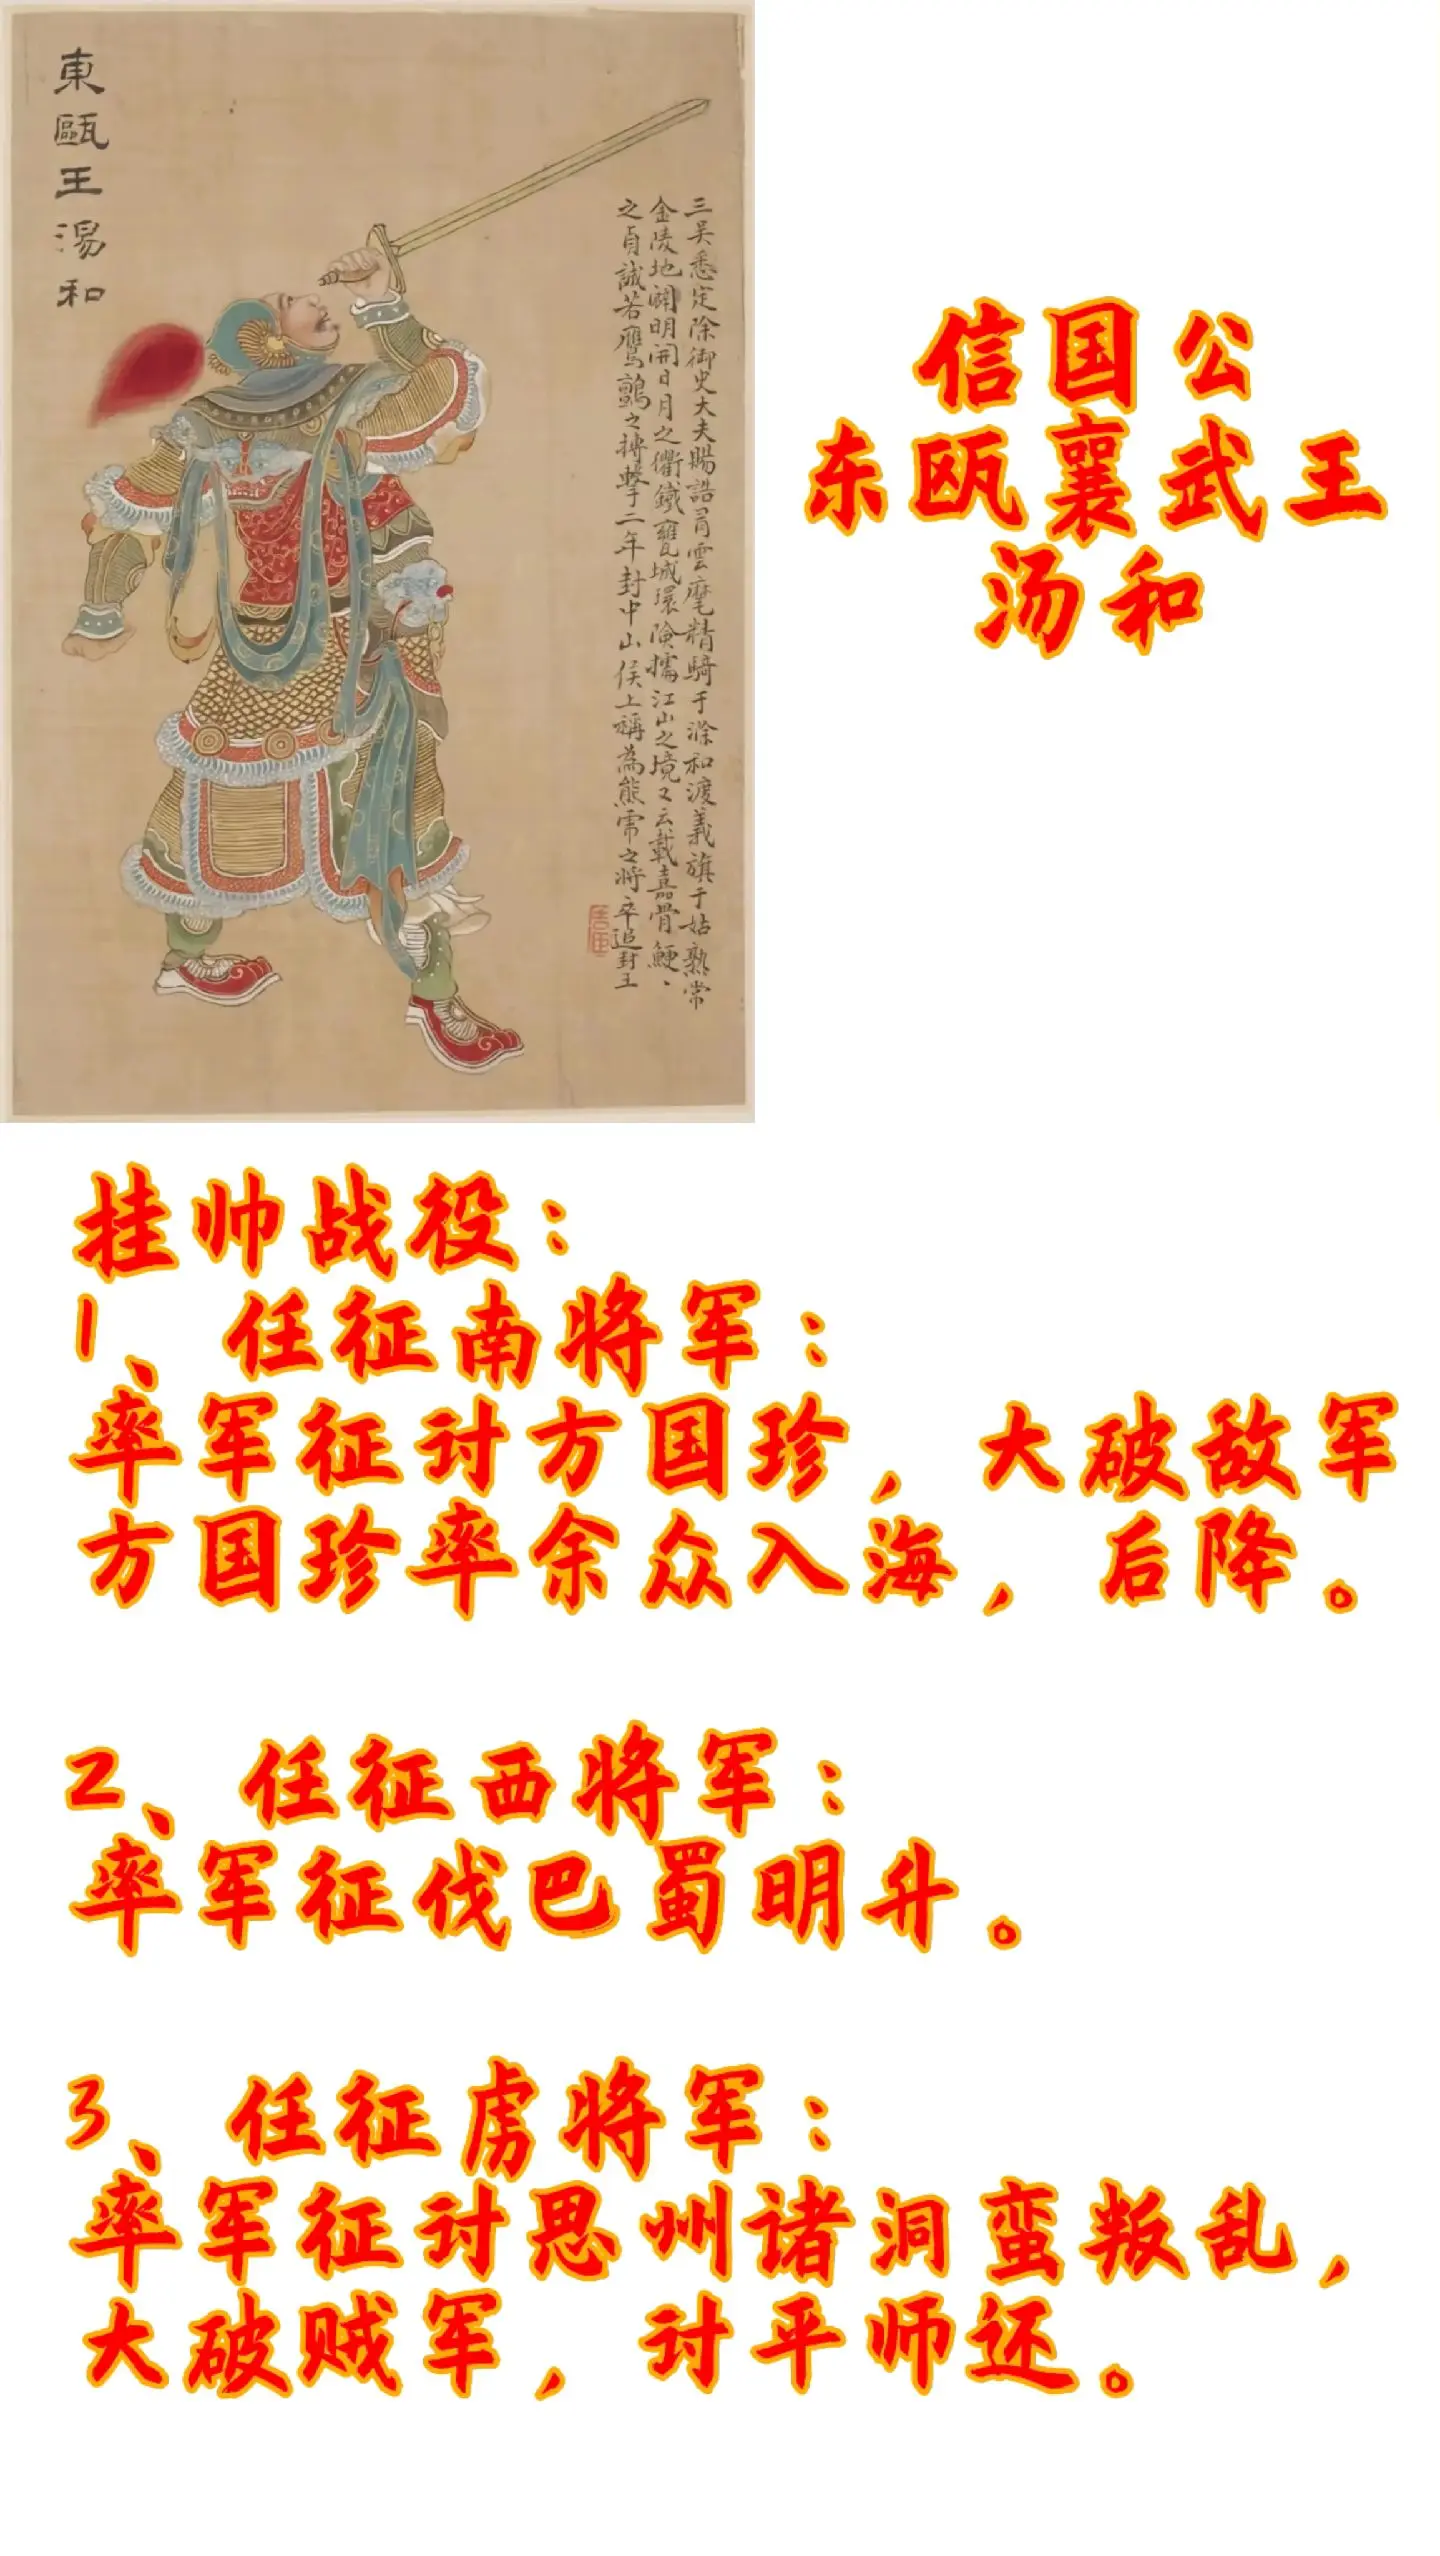 東甌王湯和
三吴悉定除御史大夫賜誥胥雲麾精騎于滁和渡義旗于姑熟常
金陵地闢明開日月之衢鐵甕城環險擂江山之境又云載嘉骨鯁、
之貞誠若鷹鸇之搏擊二年封中山侯上稱為熊羆之將卒追封王
信国公
东瓯襄武王
汤和
挂帅战役：
1、任征南将军：
率军征讨方国珍，大破敌军
方国珍率余众入海，后降。
2、任征西将军：
率军征伐巴蜀明升。
3、任征虏将军：
率军征讨思州诸洞蛮叛乱，
大破贼军，讨平师还。